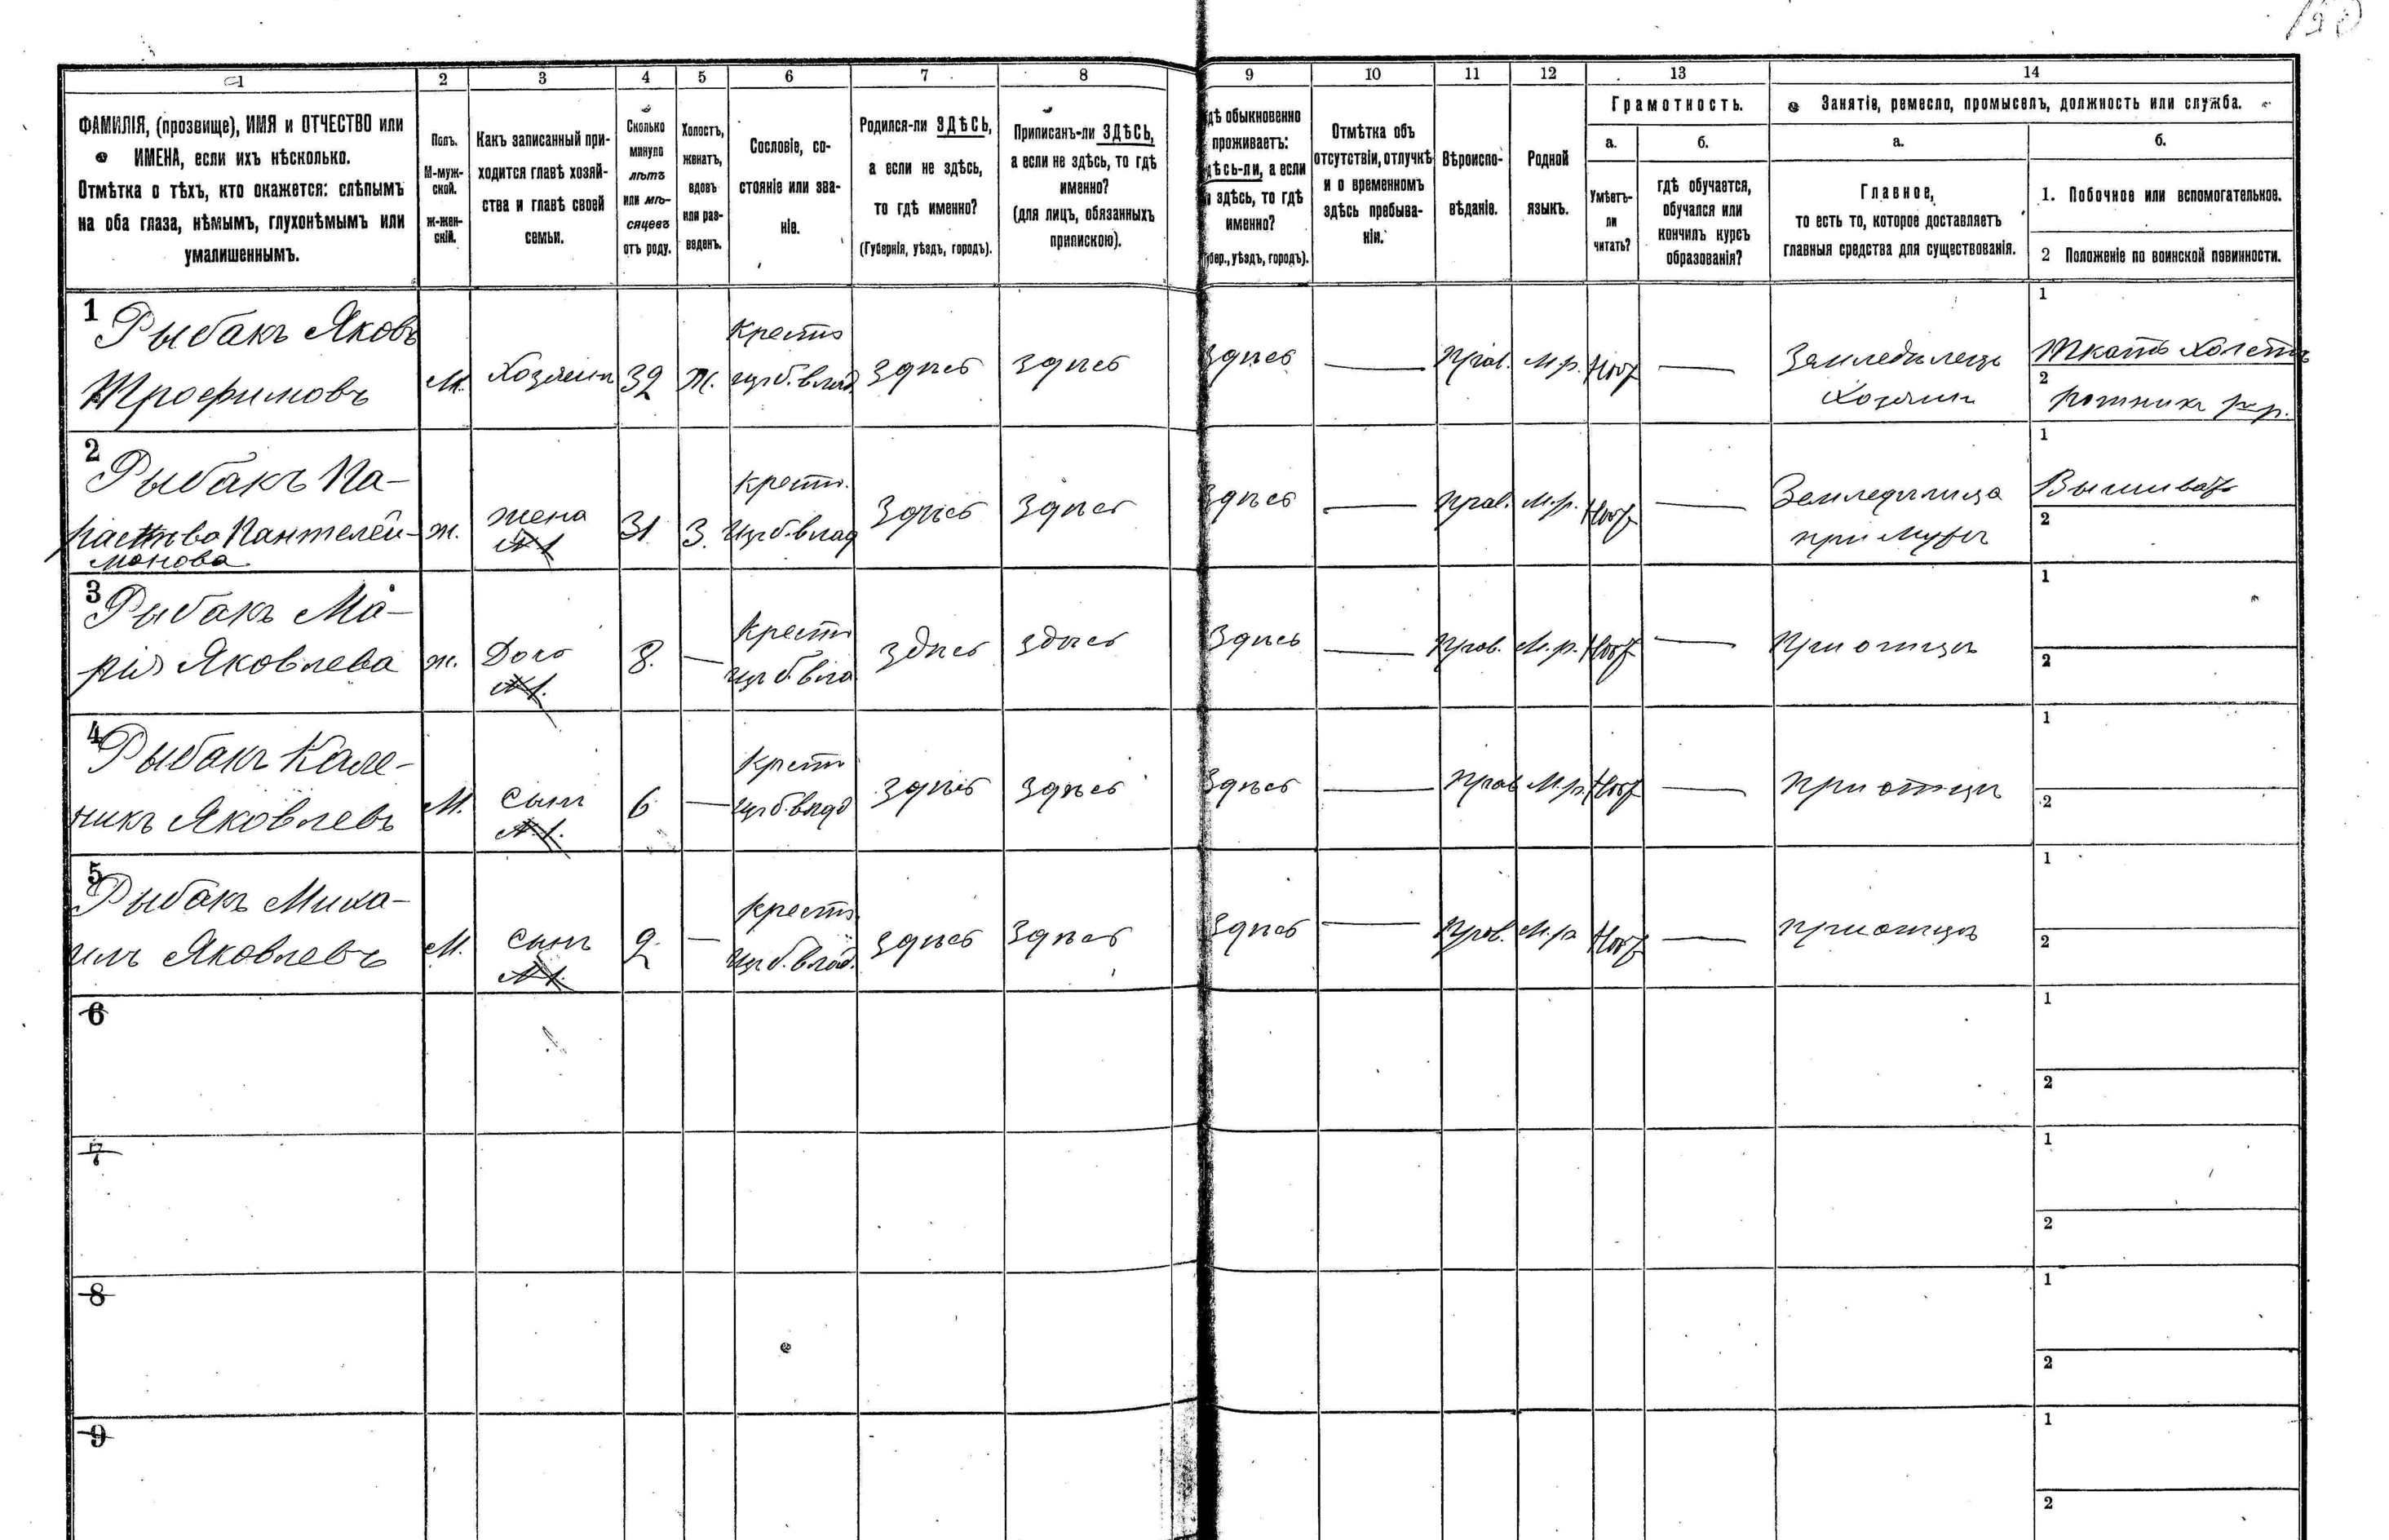 1 2 3 4 5 6 7 8 9 10 11 12 13 14
ФАМИЛІЯ, (прозвище), ИМЯ и ОТЧЕСТВО или
ИМЕНА, если ихъ нѣсколько.
Отмѣтка о тѣхъ, кто окажется: слѣпымъ
на оба глаза, нѣмымъ, глухонѣмымъ или
умалишеннымъ.
Полъ.
М-муж-
ской.
ж-жен-
скій.
Какъ записанный при-
ходится главѣ хозяй-
ства и главѣ своей
семьи.
Сколько
минуло
лѣтъ
или мѣ-
сяцевъ
отъ роду.
Холостъ,
женатъ,
вдовъ
или раз-
веденъ.
Сословіе, со-
стояніе или зва-
ніе.
Родился-ли ЗДѢСЬ,
а если не здѣсь,
то гдѣ именно?
(Губернія, уѣздъ, городъ).
Приписанъ-ли ЗДѢСЬ,
а если не здѣсь, то гдѣ
именно?
(для лицъ, обязанныхъ
припискою).
дѣ обыкновенно
проживаетъ:
дѣсь-ли, а если
здѣсь, то гдѣ
именно?
бер., уѣздъ, городъ).
Отмѣтка объ
отсутствіи, отлучкѣ
и о временномъ
здѣсь пребыва-
ніи.
Вѣроиспо-
вѣданіе.
Родной
языкъ.
Грамотность.
а.
Умѣетъ-
ли
читать?
б.
гдѣ обучается,
обучался или
кончилъ курсъ
образованія?
Занятіе, ремесло, промыселъ, должность или служба.
а.
Главное,
то есть то, которое доставляетъ
главныя средства для существованія.
б.
1. Побочное или вспомогательное.
2 Положеніе по воинской повинности.
1 Рыбакъ Яковъ
Трофимовъ
М. Хозяинъ 32 Ж.
Крестъ
здѣсь здѣсь здѣсь — Прав. М.р. —
Земледѣлецъ
Хозяинъ
1 Ткать холстъ
2 Ратникъ
2 Рыбакъ Па-
раскева Пантелей-
монова
ж. жена
№1
31 З.
Крест.
здѣсь здѣсь здѣсь — Прав. М.р. —
Земледѣлица
при мужѣ
1 Вышивать
2
3 Рыбакъ Ма-
рія Яковлева
ж. Дочь
№1.
8. —
Крест
здѣсь здѣсь здѣсь — Прав. М.р. —
при отцѣ
1
2
4 Рыбакъ Кале-
никъ Яковлевъ
М. сынъ
№1.
6 —
Крест
здѣсь здѣсь здѣсь — Прав М.р. —
при отцѣ
1
2
5 Рыбакъ Миха-
илъ Яковлевъ
М. сынъ
№1.
2 —
Крест
здѣсь здѣсь здѣсь — Прав. М.р —
при отцѣ
1
2
6
1
2
7
1
2
8
1
2
9
1
2